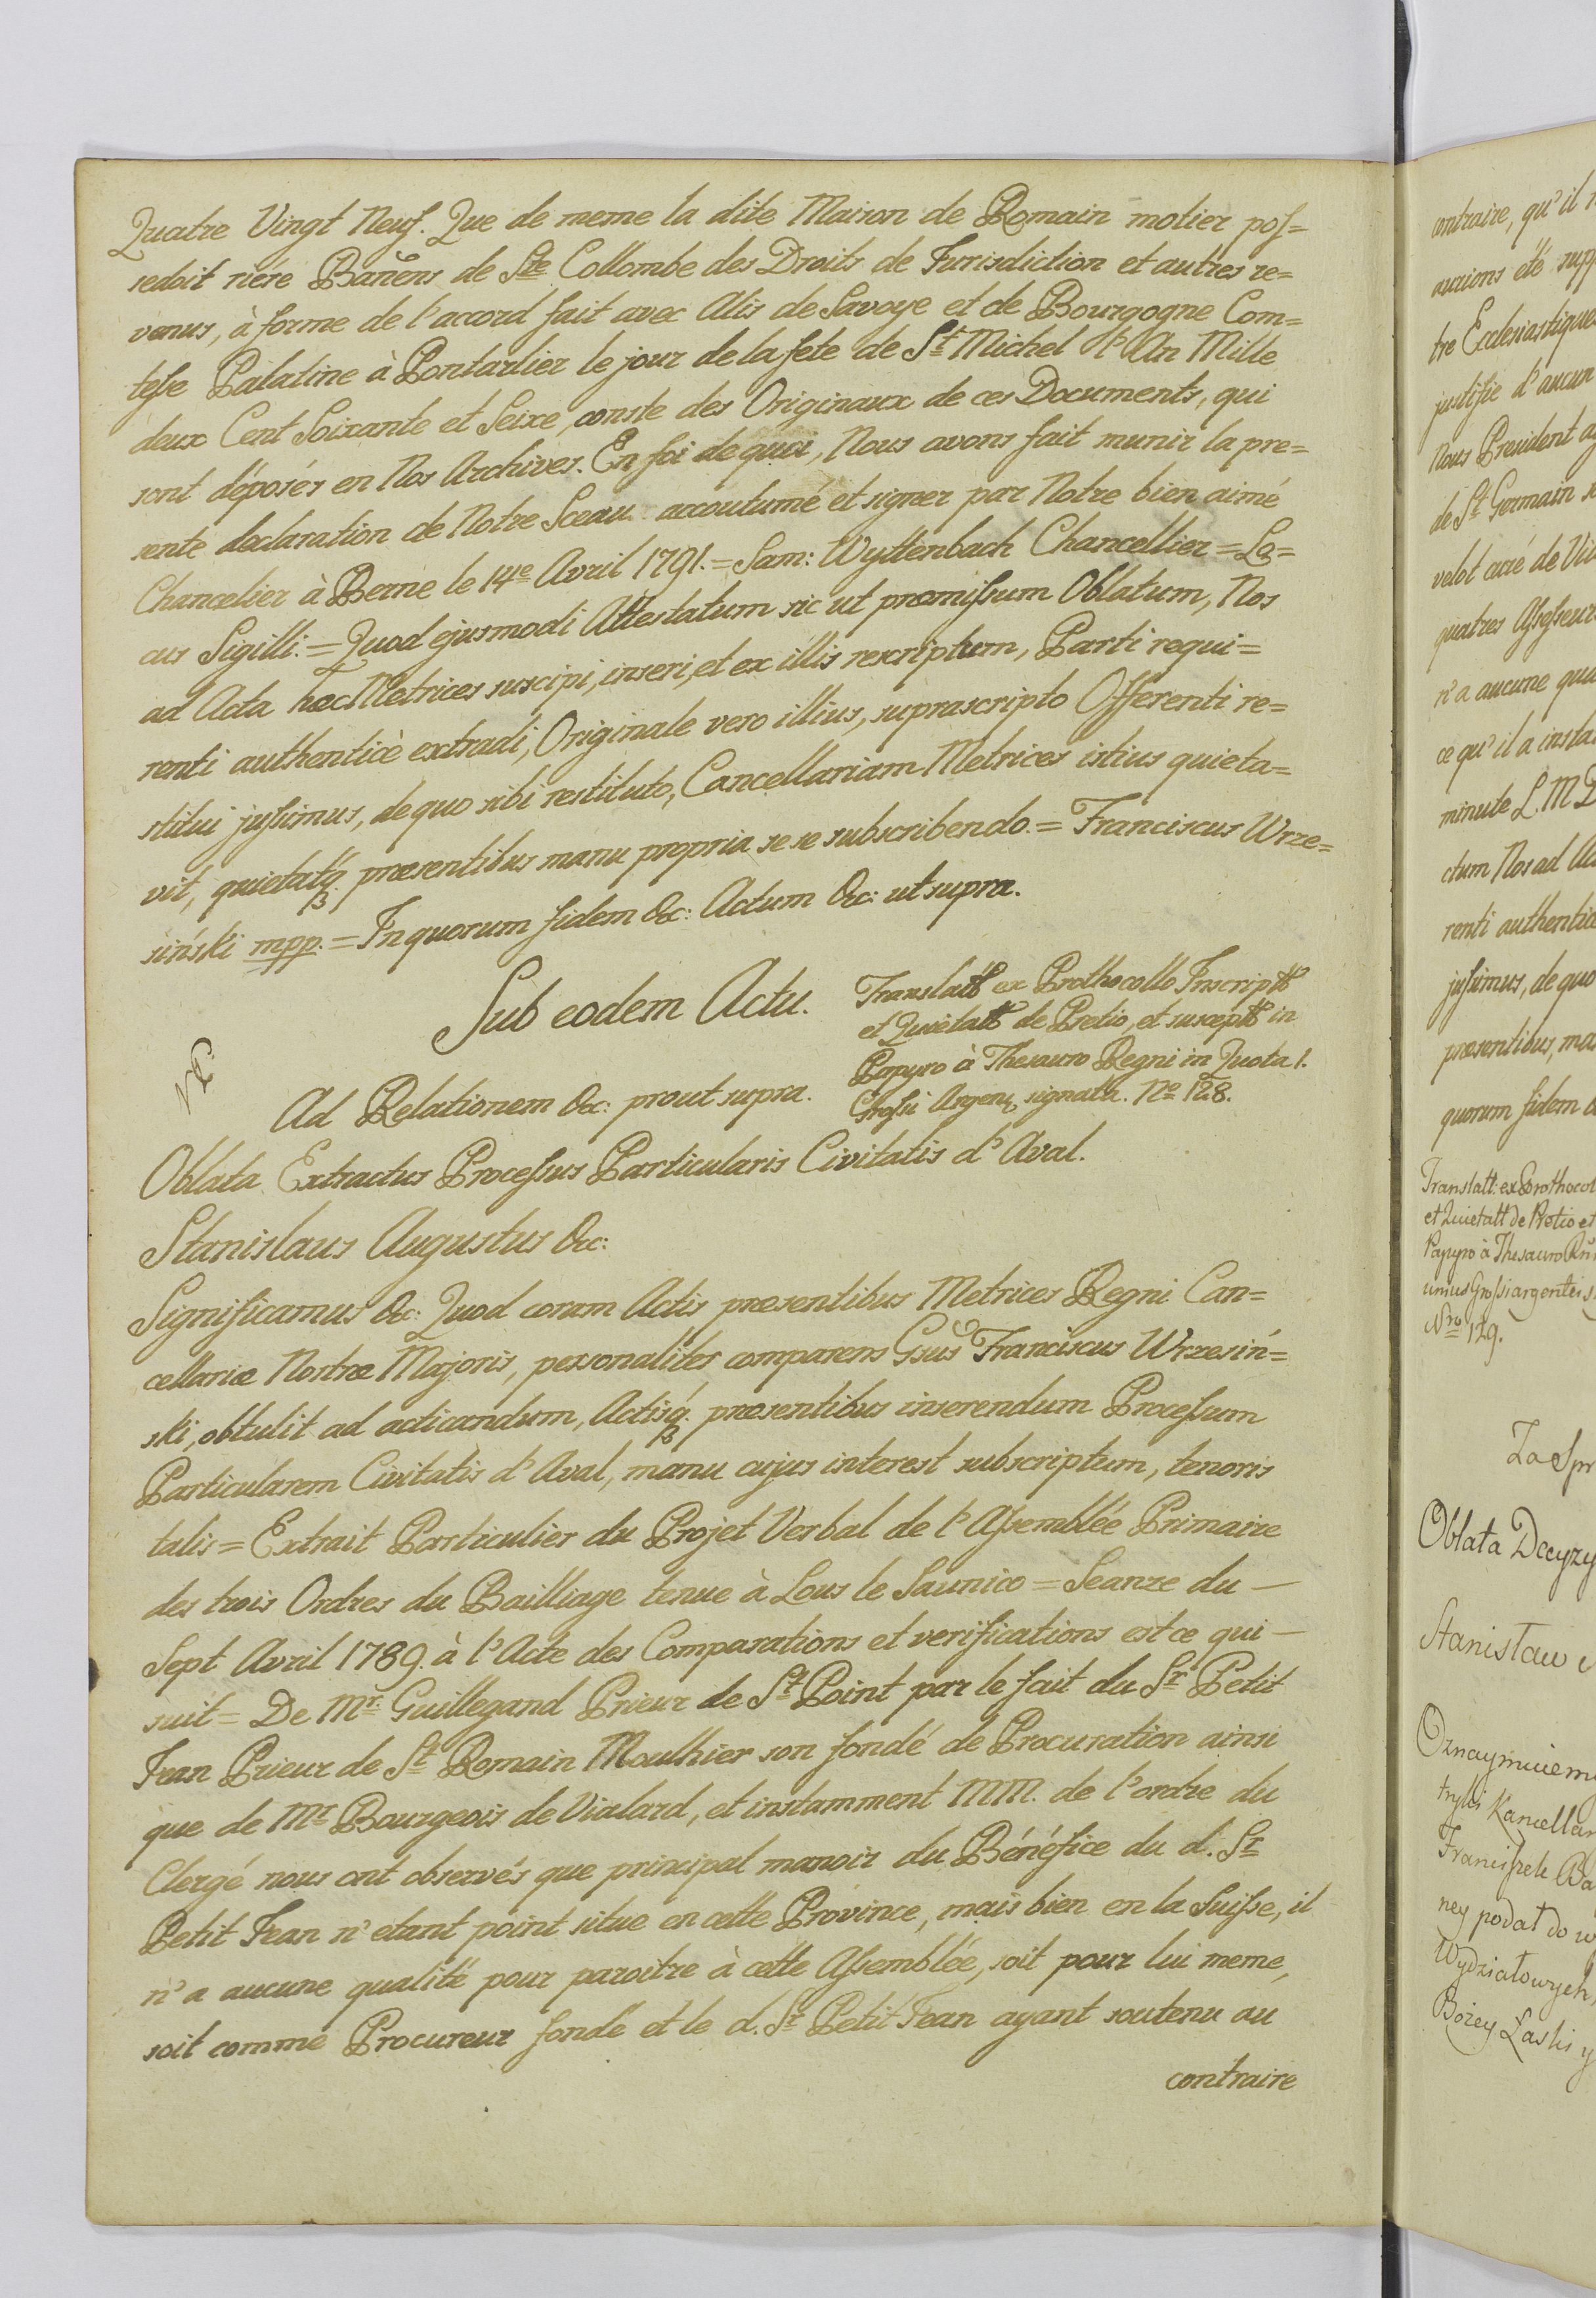 Quatre Vingt Neuf. Que de meme la dite Maison de Romain motier pos=
sedoit riére Bañens de Ste Collombe des Droits de Jurisdiction et autres re=
venus, à forme de l'accord fait avec Alis de Savoye et de Bourgogne Com=
tesse Palatine à Pontarlier le jour de la fete de St Michel l'An Mille
deux Cent Soixante et Seixe, conste des Originaux de ces Documents, qui
sont déposés en Nos Archives. En foi de quoi, Nous avons fait munir la pre=
sente declaration de Notre Sceau accoutumé et signer par Notre bien aimé
Chancelier à Berne le 14e Avril 1791. = Sam: Wyttenbach Chancellier = Lo=
cus Sigilli. = Quod ejusmodi Attestatum sic ut præmissum Oblatum, Nos
ad Acta hæc Metrices suscipi, inseri, et ex illis rescriptum, Parti requi=
renti authenticè extradi, Originale vero illius, suprascripto Offerenti re=
stitui jussimus, de quo sibi restituto, Cancellariam Metrices istius quieta=
vit, quietatq. præsentibus manu propria se se subscribendo. = Franciscus Wrze=
siński mpp. = In quorum fidem &c: Actum &c: ut supra.
Sub eodem Actu.
Translatt ex Prothocollo Inscriptt
et Quietatt de Pretio, et susceptt in
Papyro à Thesauro Regni in Quota 1.
Grossi Argen, signata. No 128.
Ad Relationem &c: prout supra.
Oblata Extractus Processus Particularis Civitatis d'Aval.
Stanislaus Augustus &c:
Significamus &c: Quod coram Actis præsentibus Metrices Regni Can=
cellariæ Nostræ Majoris, personaliter comparens Gsus Franciscus Wrzesiń=
ski, obtulit ad acticandum, Actisq. præsentibus inserendum Processum
Particularem Civitatis d'Aval, manu cujus interest subscriptum, tenoris
talis = Extrait Particulier du Projet Verbal de l'Assemblée Primaire
des trois Ordres du Bailliage tenue à Lous le Saunico = Seanze du —
Sept Avril 1789. à l'Acte des Comparations et verifications est ce qui —
suit = De Mr. Guillegand Prieur de St Point par le fait du Sr Petit
Jean Prieur de St Romain Moulhier son fondé de Procuration ainsi
que de Mr Bourgeois de Vialard, et instamment MM. de l'ordre du
Clergé nous ont observés que principal manoir du Bénéfice du d. Sr
Petit Jean n'etant point situe en cette Province, mais bien en la Suisse, il
n'a aucune qualité pour paroitre à cette Assemblée, soit pour lui meme,
soit comme Procureur fondé et le d. Sr Petit Jean ayant soutenu au
contraire
ontraire, qu'il
avions été supp
tre Ecclesiastique
justifie d'aucun
Nous President
de St Germain
velot curé de
quatres Assesseurs
n'a aucune qua
ce qu'il a insta
minute L. M
ctum Nos ad
renti authentic
jussimus, de quo
præsentibus, ma
quorum fidem
Translatt: ex Prothocol
et Quietatt de Pretio et
Papyro à Thesauro
unius Grossi argentei
Nro 129.
Za Spr
Oblata Decyzy
Stanisław
Oznaymuiemy
tryki Kancellar
Franciszek
ney podał do
Wydziałowych,
Bożey Łaski y